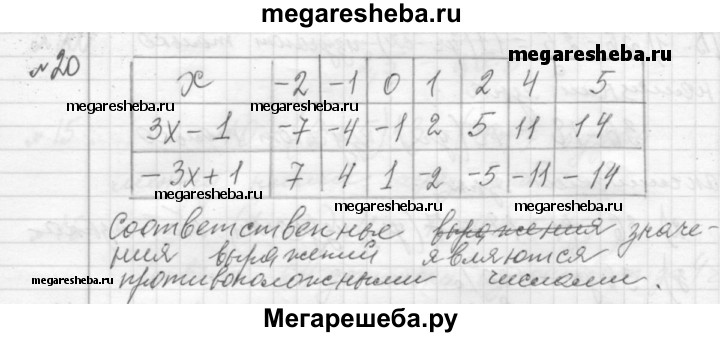 megaresheba.ru
№20
x -2 -1 0 1 2 4 5
3x-1 -7 -4 -1 2 5 11 14
-3x+1 7 4 1 -2 -5 -11 -14
Соответственные выражения значе-
ния выражений являются
противоположными числами.
megaresheba.ru
megaresheba.ru
megaresheba.ru
megaresheba.ru
megaresheba.ru
megaresheba.ru
megaresheba.ru
Мегарешеба.ру